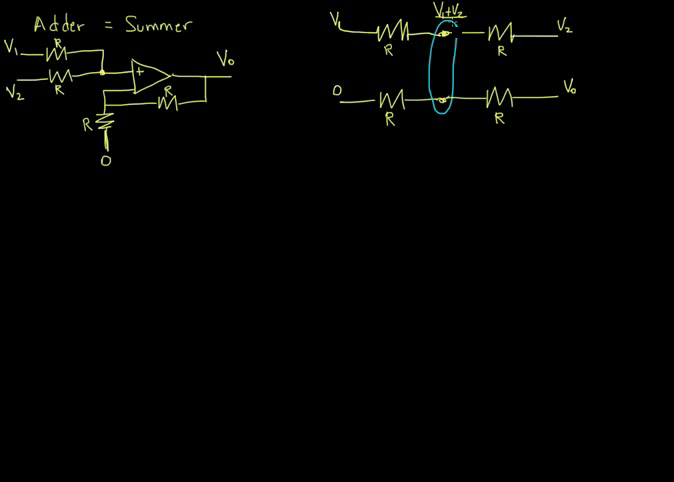 Adder = Summer
V₁
R
V₂
R
+
R
V₀
R
0
V₁
R
V₁+V₂
R
V₂
0
R
R
V₀